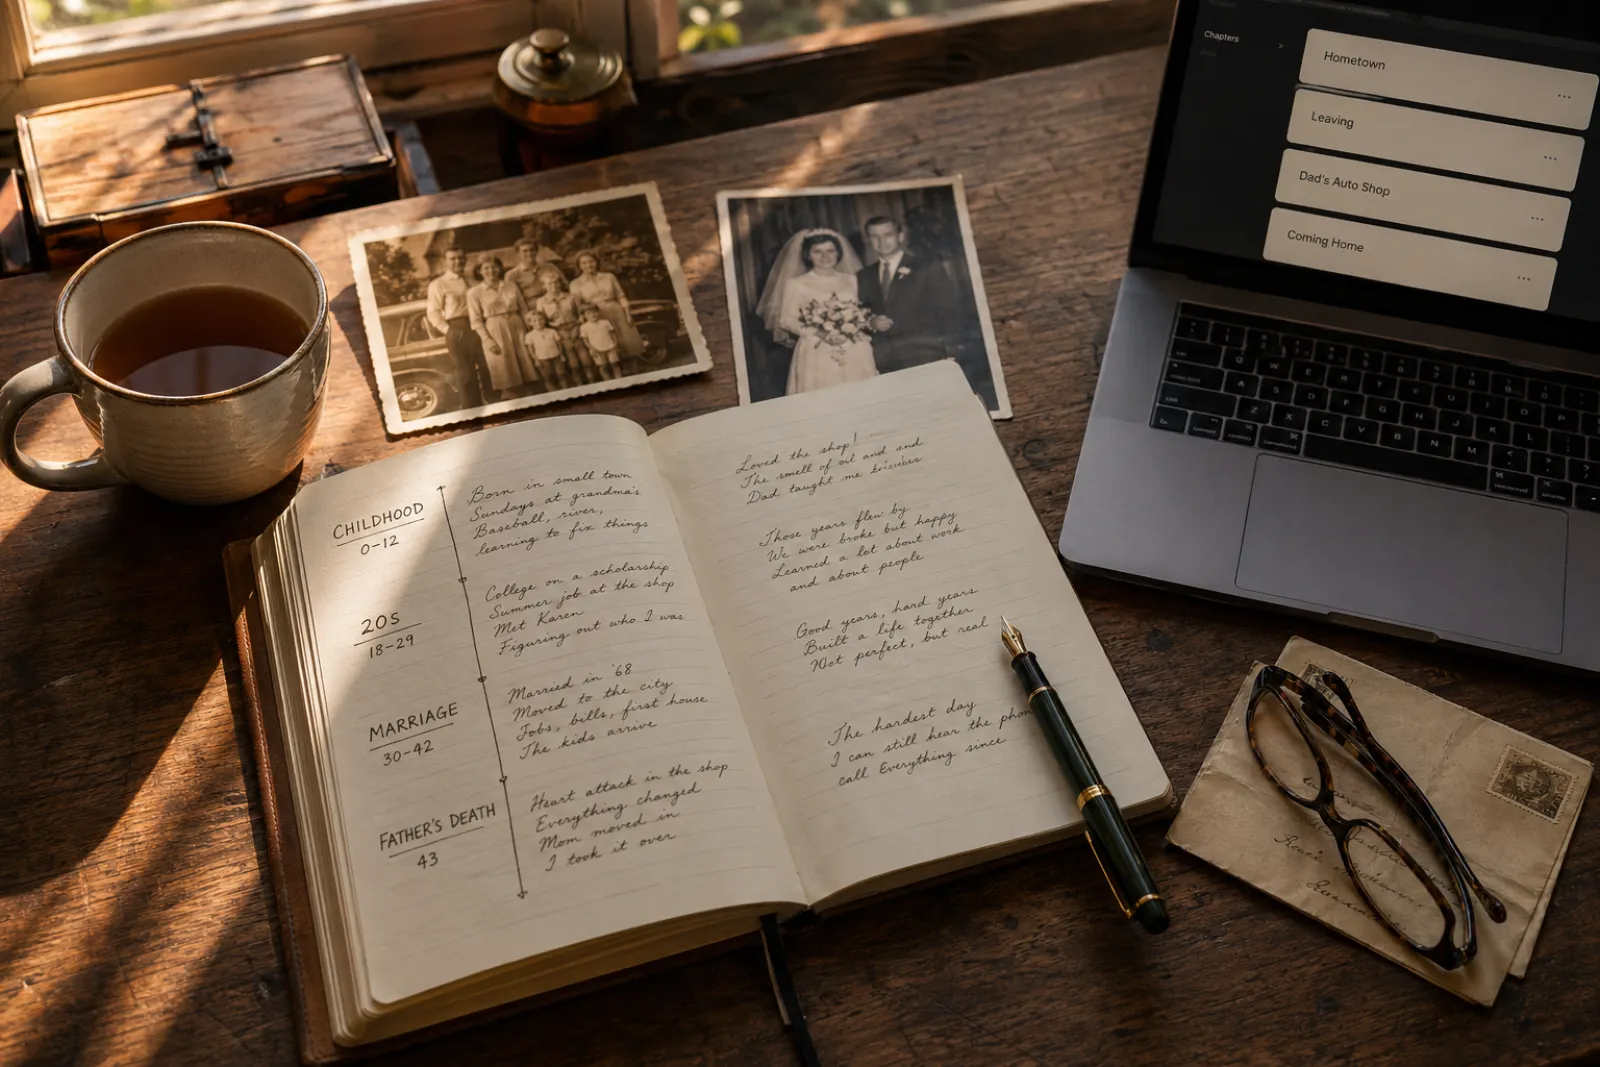 Chapters
Hometown
Leaving
Dad's Auto Shop
Coming Home
CHILDHOOD
0-12
Born in small town
Sundays at grandma's
Baseball, river,
learning to fix things
20s
18-29
College on a scholarship
Summer job at the shop
Met Karen
Figuring out who I was
MARRIAGE
30-42
Married in '68
Moved to the city
Jobs, bills, first house
The kids arrive
FATHER'S DEATH
43
Heart attack in the shop
Everything changed
Mom moved in
I took it over
Loved the shop!
The smell of oil and
Dad taught me
Those years flew by
We were broke but happy
Learned a lot about work
and about people
Good years, hard years
Built a life together
Not perfect, but real
The hardest day
I can still hear the phon
call Everything since